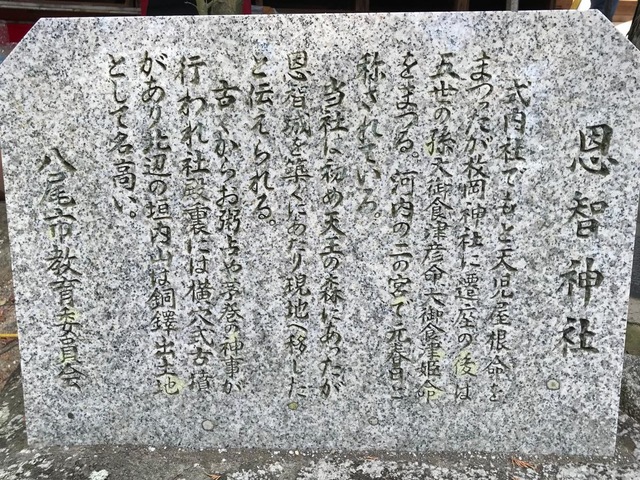 恩智神社
式内社でもと天児屋根命を
まつったが枚岡神社に遷座の後は
五世の孫大御食津彦命大御食津姫命
をまつる。河内の二の宮で元春日と
称されている。
当社は初め天王の森にあったが
恩智城を築くにあたり現地へ移した
と伝えられる。
古くからお粥占や茅巻の神事が
行われ社殿裏には横穴式古墳
があり北辺の垣内山は銅鐸出土地
として名高い。
八尾市教育委員会